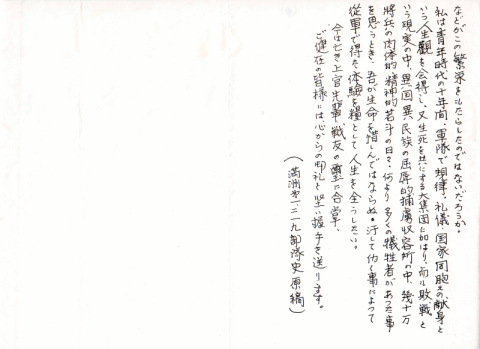 などがこの繁栄をもたらしたのではないだろうか。
私は青年時代の十年間、軍隊で規律、礼儀、国家同胞えの献身と
いう人生観を会得し、又生死を共にする大集団に加はり、而ル敗戦と
いう現実の中、異国異民族の屈辱的捕虜収容所の中、幾十万
将兵の肉体的精神的苦斗の日々、何より多くの犠牲者があった事
を思うとき、吾が生命を惜しんではならぬ。汗して仂く事によつて
従軍で得た体験を糧として人生を全うしたい。
今は亡き上官、先輩、戦友の霊に合掌、
ご健在の皆様には、心からの御礼と堅い握手を送ります。
(満洲第一二一九部隊史原稿)